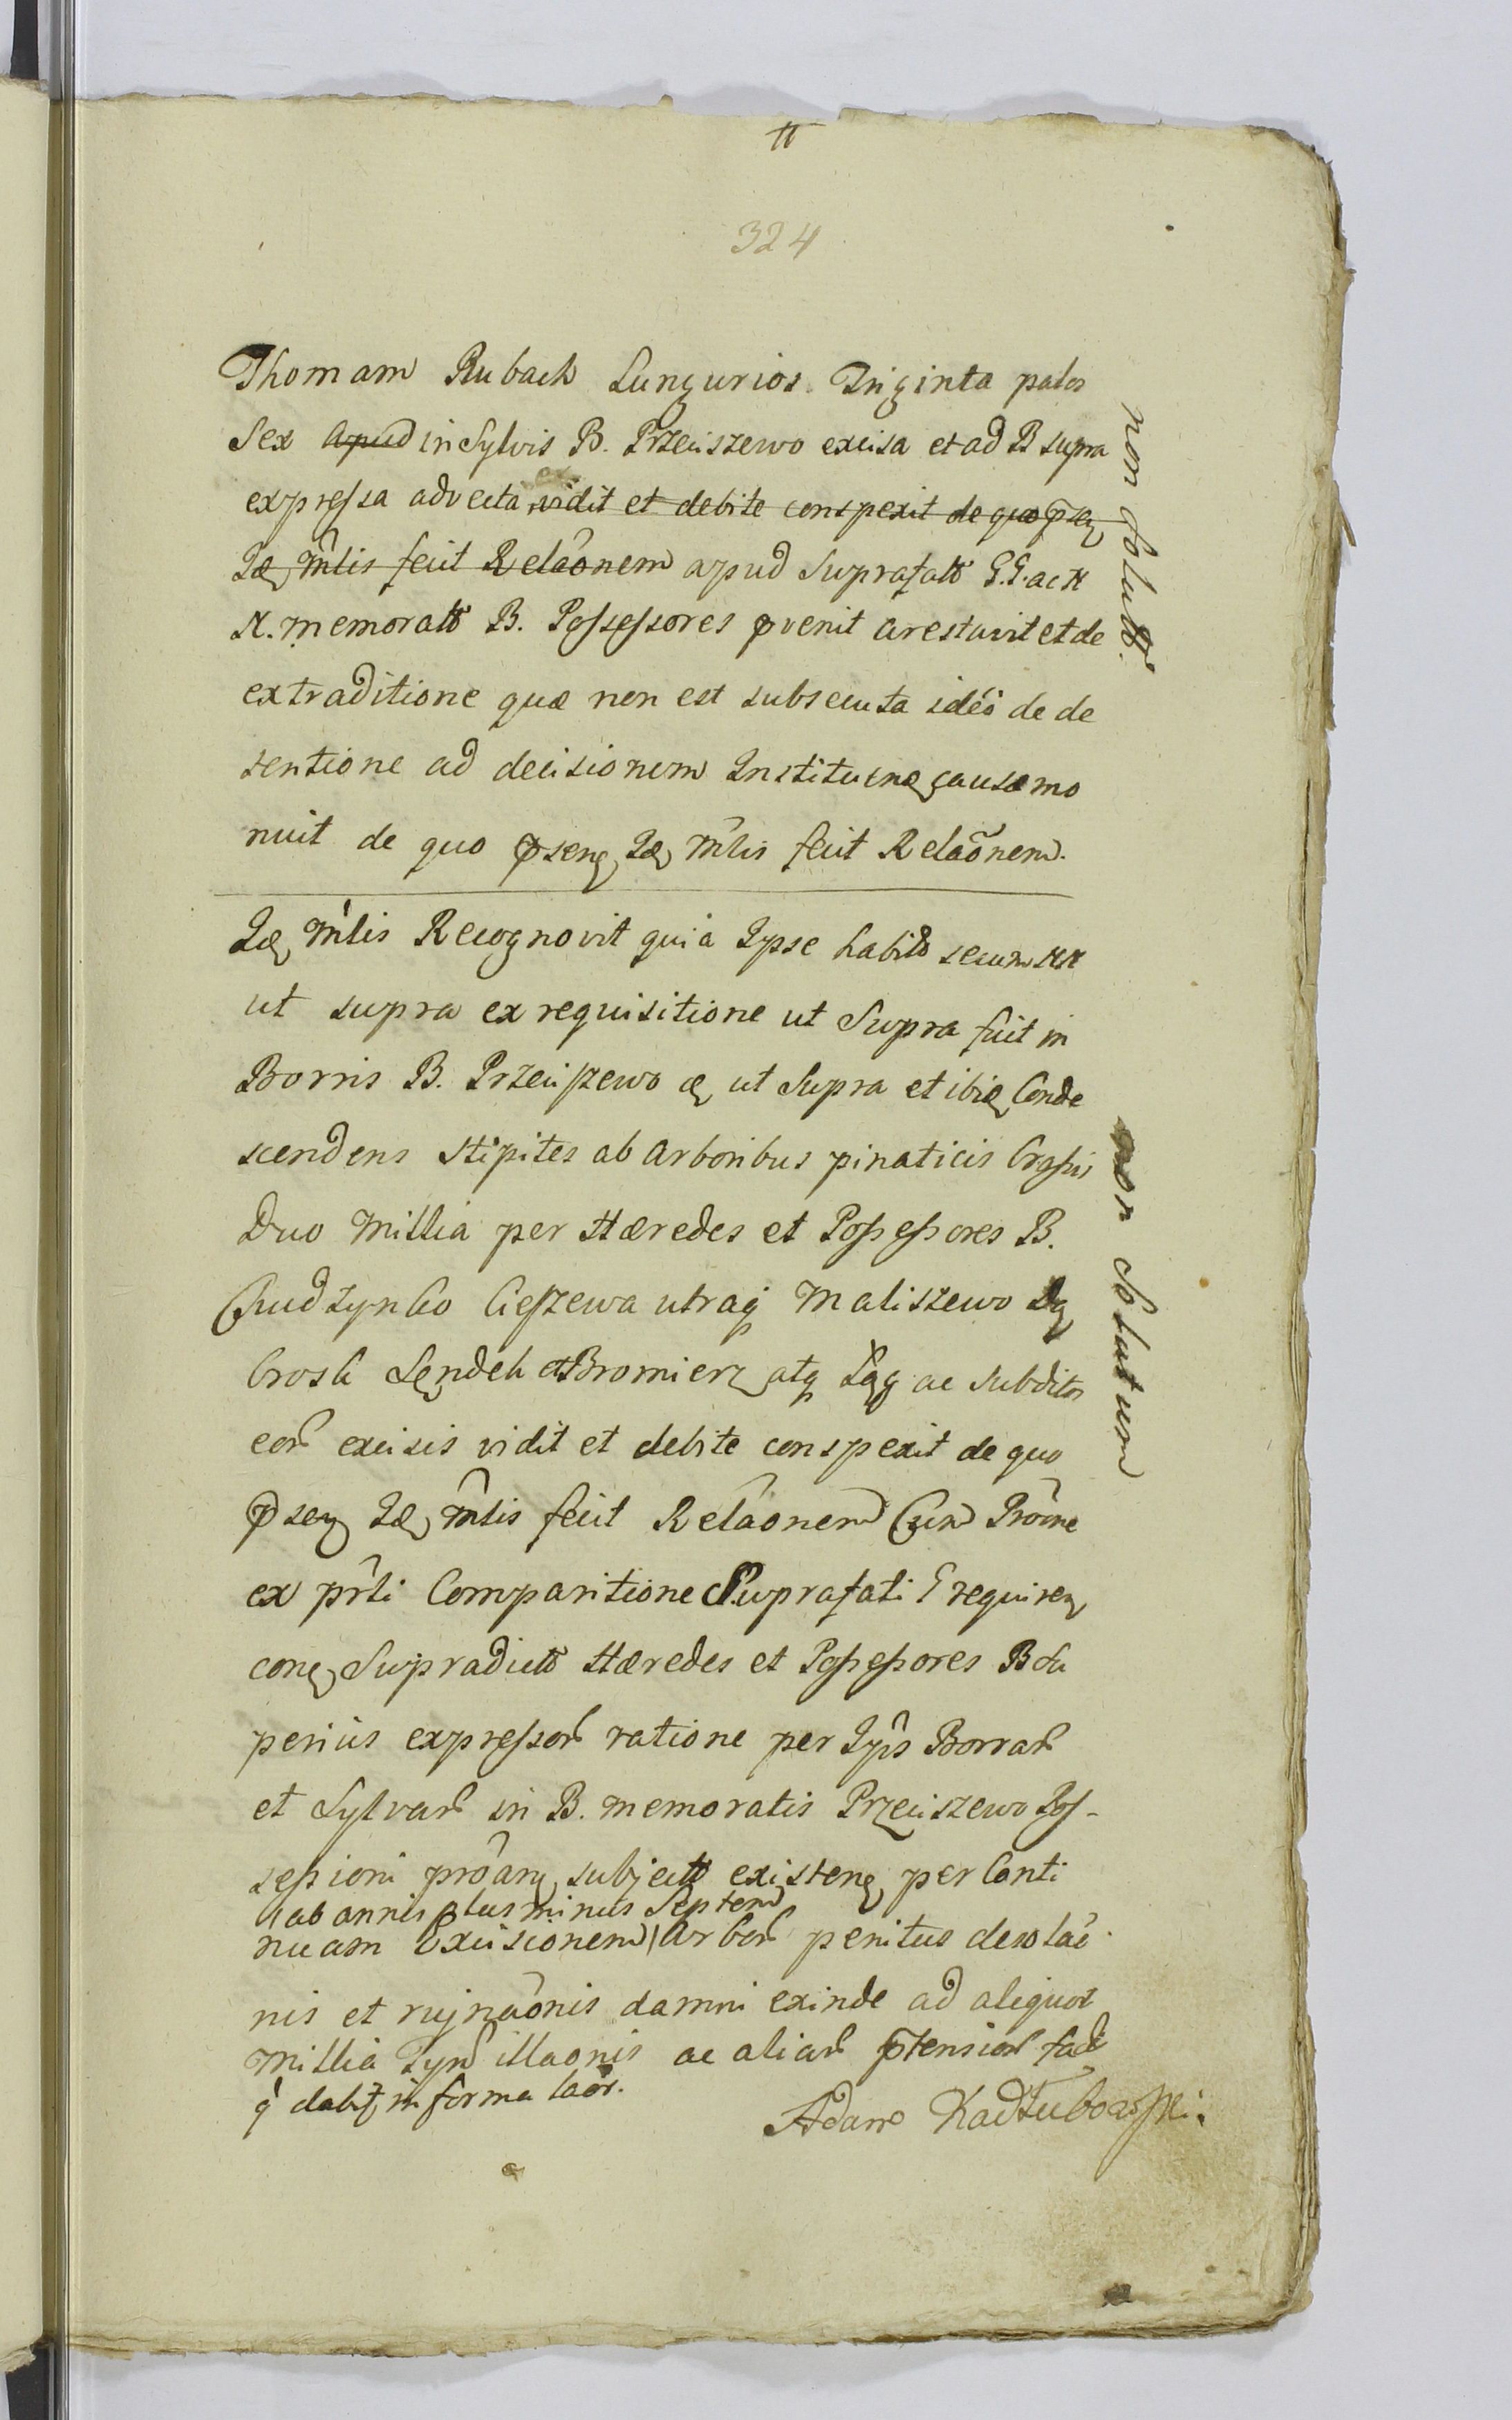 324
Thomam Rubach Sungurios Triginta palos
Sex apud in Sylvis B. Przeciszewo excisa et ad B supra
expressa advecta vidit et debite conspexit de quo
Idẽ mlis fecit Relaõnem apud Suprafatt G.G. ac N
N. memoratt B. Possessores pvenit arestavit et de
extraditione quæ non est subsecuta ideò de de
tentione ad decisionem causæ mo
nuit de quo pseng Idẽ mlis fecit Relaõnem.
Idẽ mlis Recognovit quia Ipse habitt secum NN
ut supra ex requisitione ut Supra fuit in
Borris B. Przeciszewo ut Supra et ibiq Conde
scendens stipites ab arboribus pinaticis Crassis
Duo Millia per Hæredes et Possessores B.
Chudzynko Cieszewa utraq Maliszewo
et Bromierz atq ac subditos
eor excisis vidit et debite conspexit de quo
pseng Idẽ mlis fecit Relaõnem Cum
ex prti Comparitione Suprafati G requiren
con Supradictt Hæredes et Possessores B Su
periùs expressor ratione per Ipos Borrar
et Sylvar in B. memoratis Przeciszewo Pos-
sessioni subjectt existeng per Conti
(ab annis plus minus Septem
nuam Excisionem) arbor penitus desolaõ
nis et rujnaõnis damni exinde ad aliquot
Millia Tyn illaõnis ac aliar ptension
q dabit in forma laõr.
Adam Kadłubowski.
non solutt
non Solutum